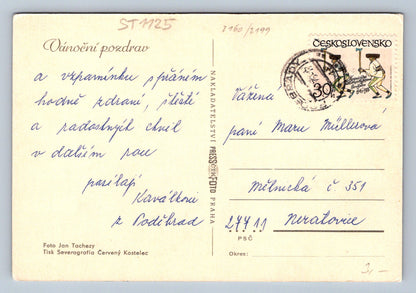 ST 1125
2160/2199
Vánoční pozdrav
a vzpomínku s přáním
hodně zdraví, štěstí
a radostných chvil
v dalším roce
posílají
Kaválkovi
z Poděbrad
Foto Jan Tachezy
Tisk Severografia Červený Kostelec
NAKLADATELSTVÍ PRESSFOTO PRAHA
ČESKOSLOVENSKO
30
Vážená
paní Marie Müllerová
Mělnická č 351
277 11 Neratovice
PSČ
Okres:
3,-